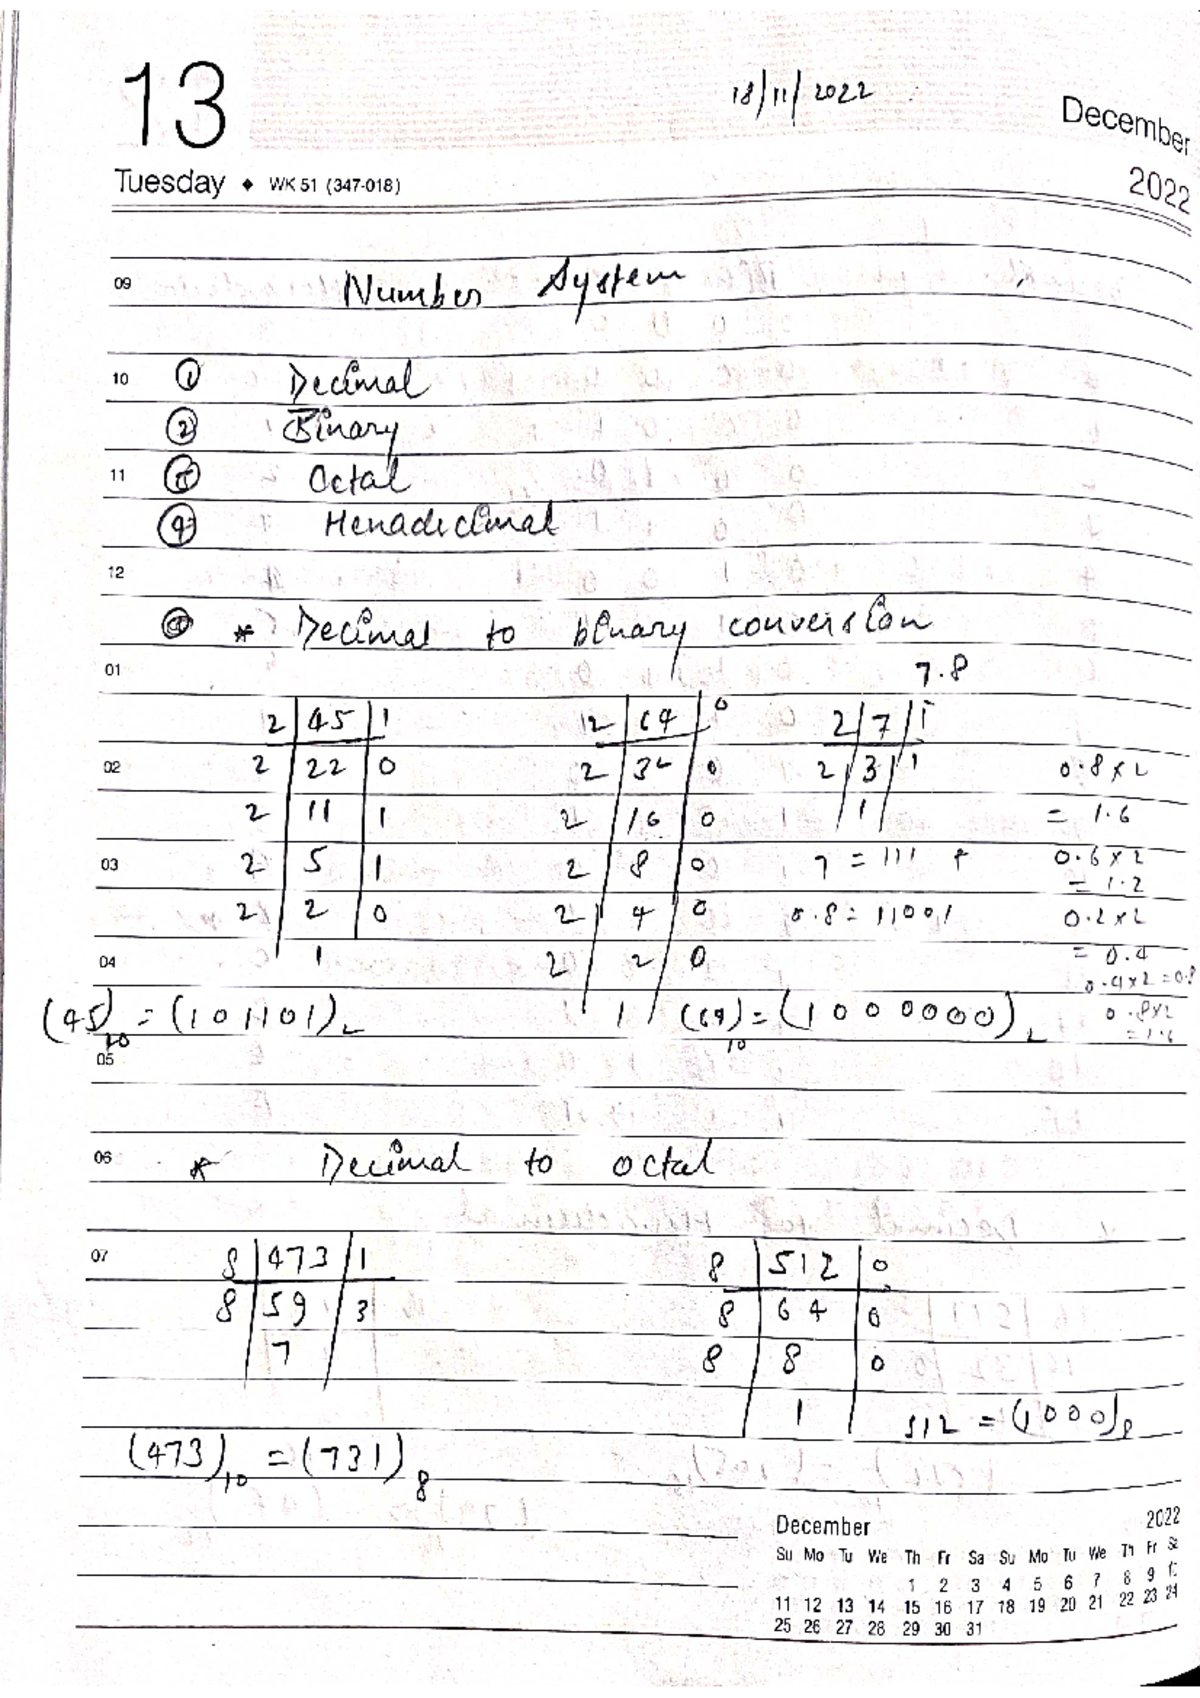 13
18/11/2022
December
Tuesday ♦ WK 51 (347-018)
2022
09 Number System
10 ① Decimal
② Binary
11 Octal
④ Henadecimal
12
* Decimal to binary conversion
01 7.8
2 | 45 | 1 2 | 64 | 0 2 | 7 | 1
02 2 | 22 | 0 2 | 32 | 0 2 | 3 | 1 0.8×2
2 | 11 | 1 2 | 16 | 0 1 = 1.6
03 2 | 5 | 1 2 | 8 | 0 7 = 111 0.6×2
= 1.2
2 | 2 | 0 2 | 4 | 0 0.8 = 11001 0.2×2
04 1 2 | 2 | 0 = 0.4
0.4×2=0.8
(45)10 = (101101)2 1 (64)10 = (1000000)2 0.8×2
= 1.6
05
06 * Decimal to octal
07 8 | 473 | 1 8 | 512 | 0
8 | 59 | 3 8 | 64 | 0
7 8 | 8 | 0
1 512 = (1000)8
(473)10 = (731)8
December 2022
Su Mo Tu We Th Fr Sa Su Mo Tu We Th Fr Sa
1 2 3 4 5 6 7 8 9
11 12 13 14 15 16 17 18 19 20 21 22 23 24
25 26 27 28 29 30 31